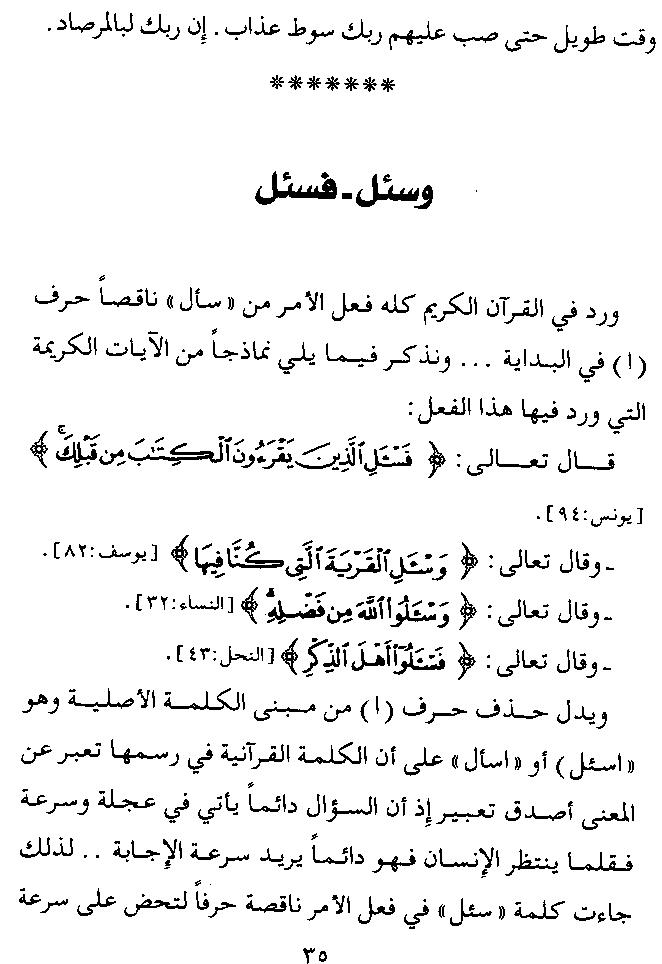 وقت طويل حتى صب عليهم ربك سوط عذاب. إن ربك لبالمرصاد.
*******
وسئل - فسئل
ورد في القرآن الكريم كله فعل الأمر من «سأل» ناقصاً حرف
(ا) في البداية ... ونذكر فيما يلي نماذجاً من الآيات الكريمة
التي ورد فيها هذا الفعل:
قال تعالى: ﴿ فَسْـَٔلِ ٱلَّذِينَ يَقْرَءُونَ ٱلْكِتَٰبَ مِن قَبْلِكَ ۚ ﴾
[يونس:٩٤].
- وقال تعالى: ﴿ وَسْـَٔلِ ٱلْقَرْيَةَ ٱلَّتِى كُنَّا فِيهَا ﴾ [يوسف:٨٢].
- وقال تعالى: ﴿ وَسْـَٔلُوا۟ ٱللَّهَ مِن فَضْلِهِۦٓ ﴾ [النساء:٣٢].
- وقال تعالى: ﴿ فَسْـَٔلُوٓا۟ أَهْلَ ٱلذِّكْرِ ﴾ [النحل:٤٣].
ويدل حذف حرف (ا) من مبنى الكلمة الأصلية وهو
«اسئل) أو «اسأل» على أن الكلمة القرآنية في رسمها تعبر عن
المعنى أصدق تعبير إذ أن السؤال دائماً يأتي في عجلة وسرعة
فقلما ينتظر الإنسان فهو دائماً يريد سرعة الإجابة .. لذلك
جاءت كلمة «سئل» في فعل الأمر ناقصة حرفاً لتحض على سرعة
٣٥